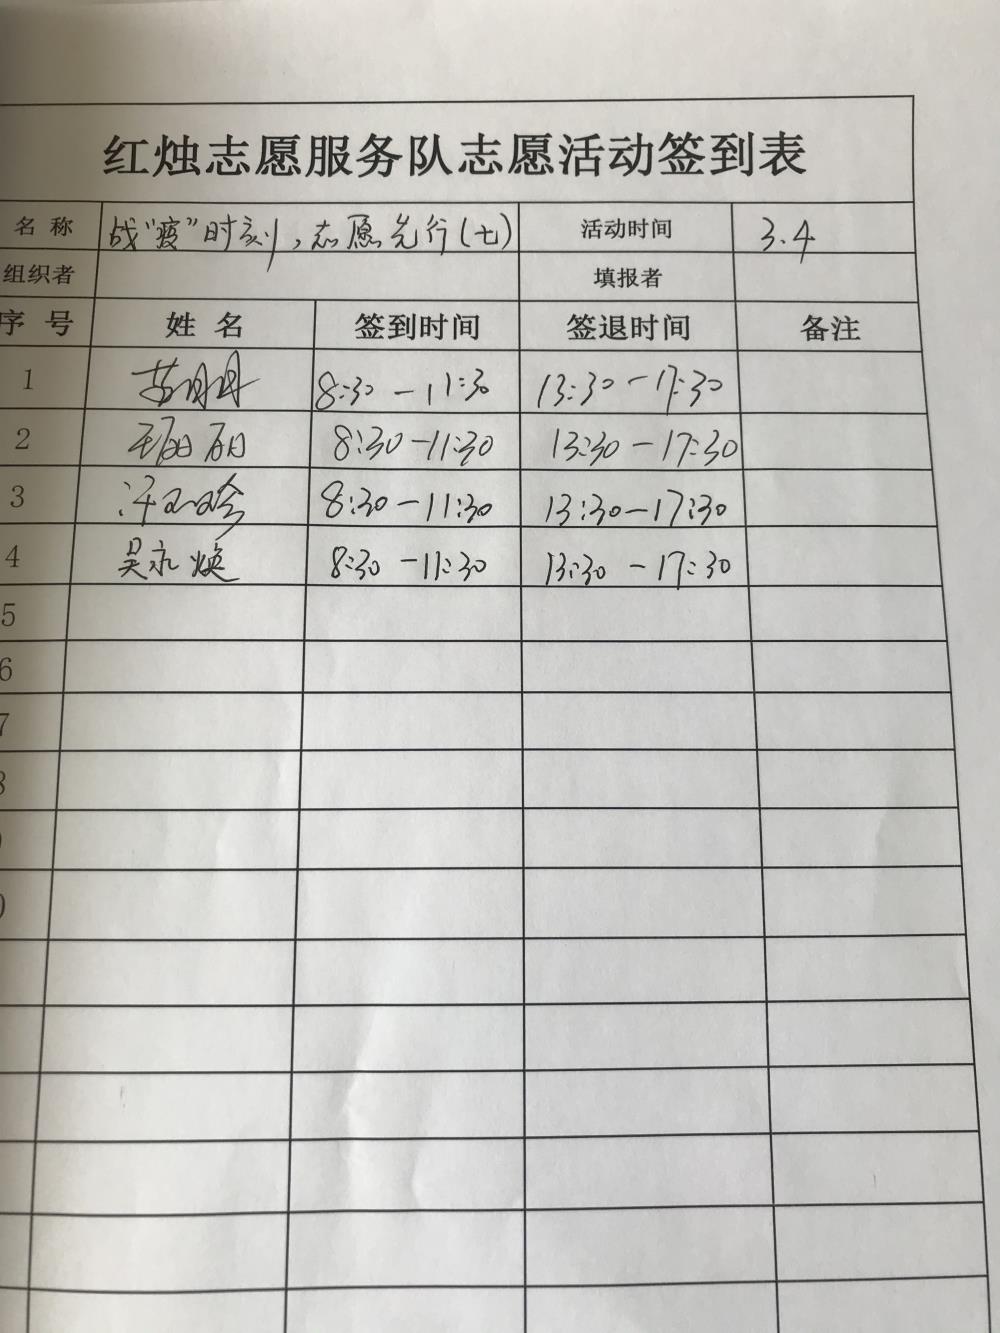 红烛志愿服务队志愿活动签到表
名称 战“疫”时刻，志愿先行(七) 活动时间 3.4
组织者 填报者
序号 姓名 签到时间 签退时间 备注
1 8:30-11:30 13:30-17:30
2 8:30-11:30 13:30-17:30
3 汪双珍 8:30-11:30 13:30-17:30
4 吴永焕 8:30-11:30 13:30-17:30
5
6
7
8